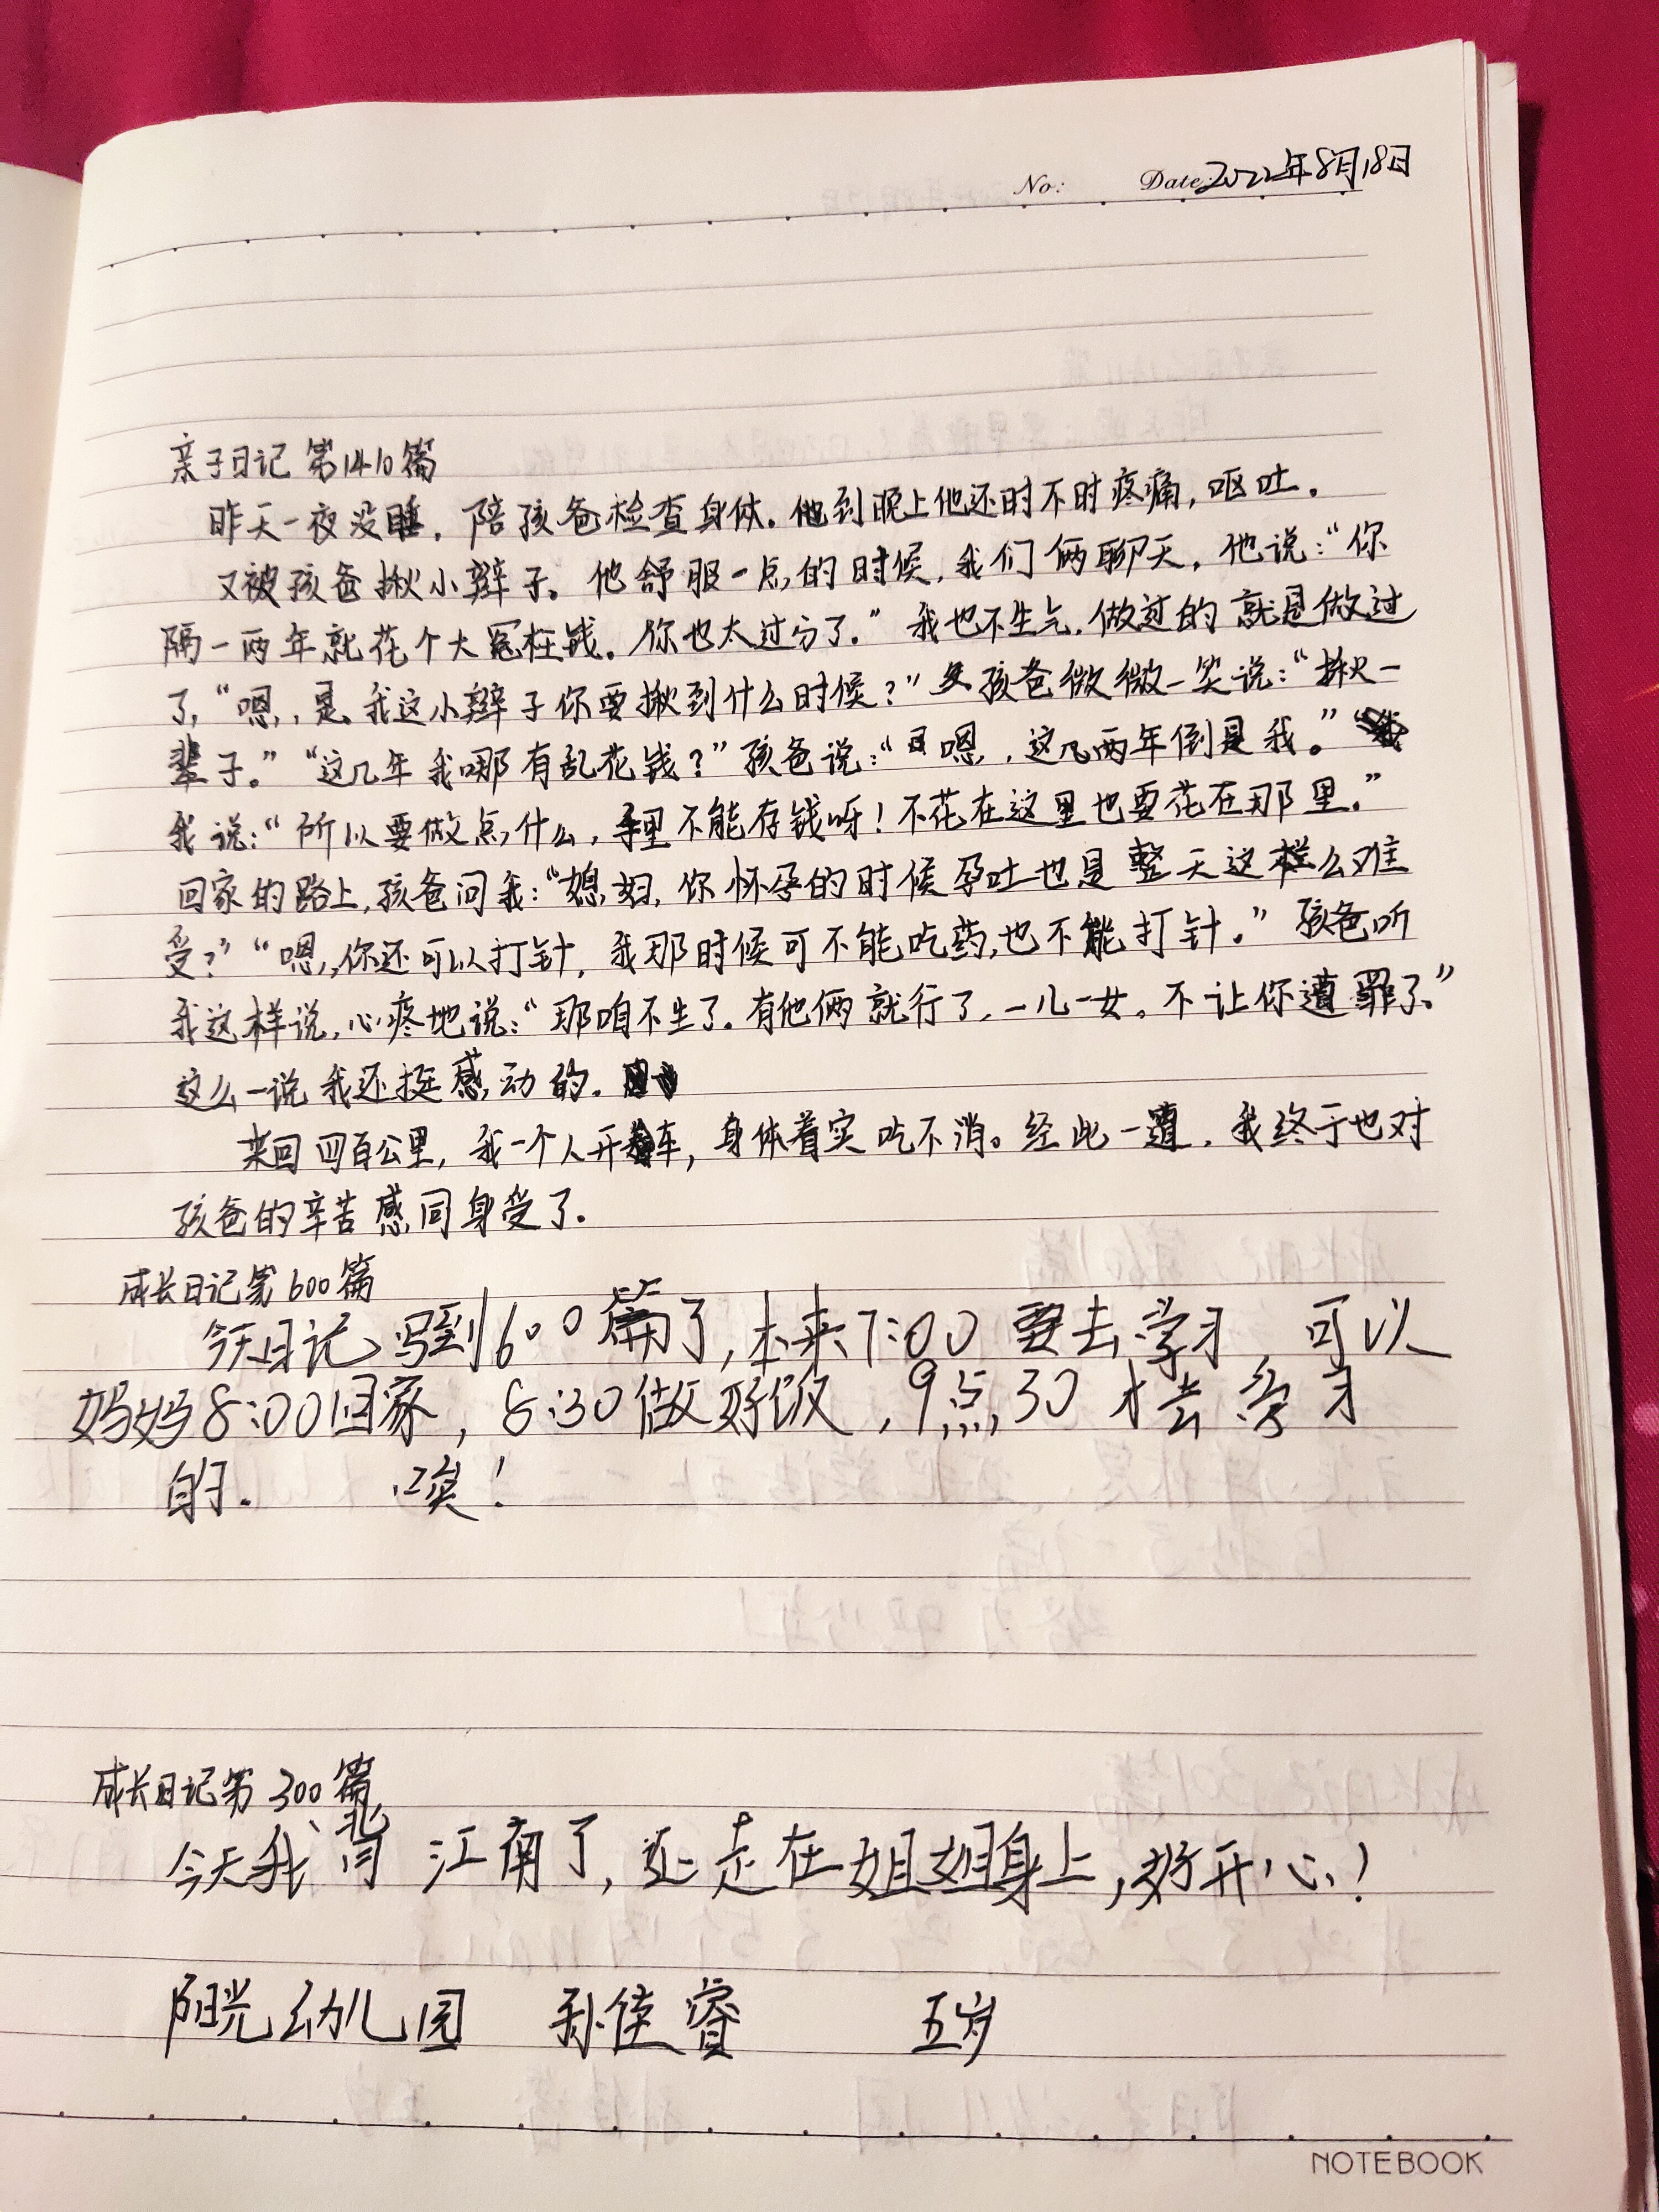 No: Date: 2022年8月18日
亲子日记 第1410篇
昨天一夜没睡,陪孩爸检查身体。他到晚上他还时不时疼痛,呕吐。
又被孩爸揪小辫子。他舒服一点的时候,我们俩聊天,他说:“你
隔一两年就花个大冤枉钱。你也太过分了。”我也不生气,做过的就是做过
了,“嗯,是,我这小辫子你要揪到什么时候?”孩爸微微一笑说:“揪一
辈子。”“这几年我哪有乱花钱?”孩爸说:“嗯,这几两年倒是我。”
我说:“所以要做点什么,手里不能存钱呀!不花在这里也要花在那里。”
回家的路上,孩爸问我:“媳妇,你怀孕的时候孕吐也是整天这样么难
受?”“嗯,你还可以打针,我那时候可不能吃药,也不能打针。”孩爸听
我这样说,心疼地说:“那咱不生了。有他俩就行了,一儿一女。不让你遭罪了。”
这么一说我还挺感动的。
来回四百公里,我一个人开车,身体着实吃不消。经此一遭,我终于也对
孩爸的辛苦感同身受了。
成长日记第600篇
今天日记写到600篇了,本来7:00要去学习,可以
妈妈8:00回家,8:30做好饭,9点30才去学习
的。 唉!
成长日记第300篇
今天我背江南了,还走在姐姐身上,好开心!
阳光幼儿园 孙佳睿 五岁
NOTEBOOK